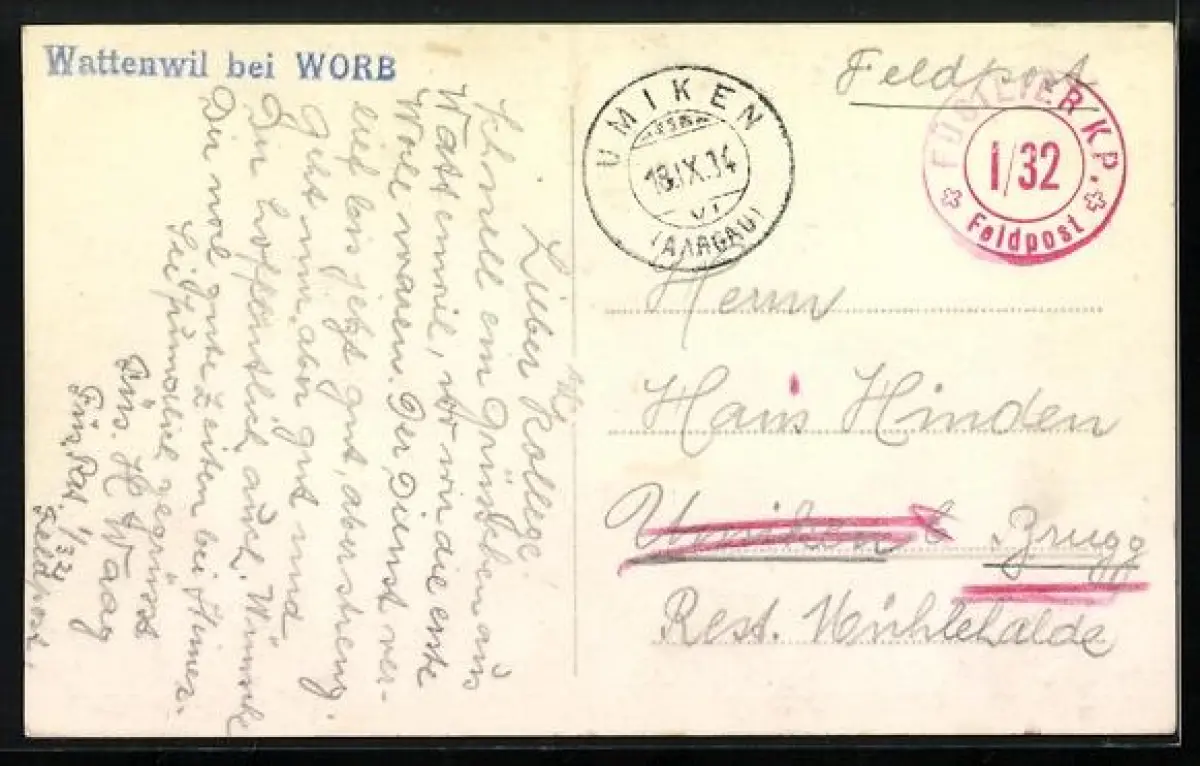 Wattenwil bei WORB
Lieber Kollege!
Schnell ein Grüsschen aus
Wattenwil, wo wir die erste
Woche waren. Der Dienst ver-
lief bis jetzt gut, aber streng.
Geht mir aber gut und
Dir hoffentlich auch. Wünsche
Dir noch gute Zeiten bei
Sei freundlich gegrüsst
Füs. H Waag
Füs. Kp. I/32
Feldpost.
UMIKEN
18.IX.14
VI
(AARGAU)
Feldpost
FÜSILIER KP.
I/32
Feldpost
Herrn
Hans Hinden
Umiken b. Brugg
Rest. Mühlehalde